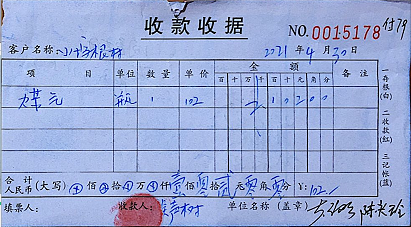 收款收据 NO.0015178 付79
客户名称 2021年4月30日
项目 单位 数量 单价 金额 备注
百 十 万 千 百 十 元 角 分
煤气 瓶 1 102 1 0 2 0 0
合计人民币(大写) 佰 拾 万 仟 壹佰零拾贰元零角零分 ¥:102
填票人: 收款人: 单位名称(盖章)
一存根(白) 二收款(红) 三记帐(蓝)